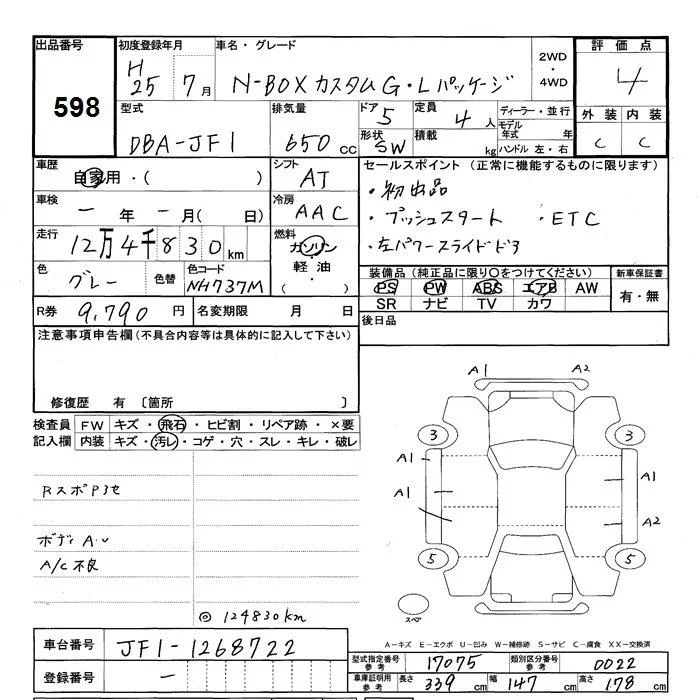 出品番号 598
初度登録年月 H25年 7月
車名・グレード N-BOXカスタムG・Lパッケージ
2WD・4WD
評価点 4
型式 DBA-JF1
排気量 650cc
ドア 5
形状 SW
定員 4人
積載 kg
ディーラー・並行
モデル年式 年
ハンドル 左・右
外装 内装
C C
車歴 自家用・( )
シフト AT
セールスポイント(正常に機能するものに限ります)
・初出品
・プッシュスタート ・ETC
・左パワースライドドア
車検 ー年ー月( 日)
冷房 AAC
走行 12万4千830km
燃料 ガソリン・軽油・( )
色 グレー 色替
色コード NH737M
装備品(純正品に限り○をつけてください)
PS PW ABS エアB AW
SR ナビ TV カワ
新車保証書
有・無
R券 9,790円
名変期限 月 日
後日品
注意事項申告欄(不具合内容等は具体的に記入して下さい)
修復歴 有〔箇所 〕
検査員記入欄
FW キズ・飛石・ヒビ割・リペア跡・×要
内装 キズ・汚レ・コゲ・穴・スレ・キレ・破レ
A1 A2
3 3
A1 A1
A1 A2
5 5
スペア
ボディ A・U
A/C不良
◎ 124830km
A-キズ E-エクボ U-凹み W-補修跡 S-サビ C-腐食 XX-交換済
車台番号 JF1-1268722
登録番号 ー
型式指定番号 参考 17075
類別区分番号 参考 0022
車庫証明用 参考 長さ 339cm 幅 147cm 高さ 178cm